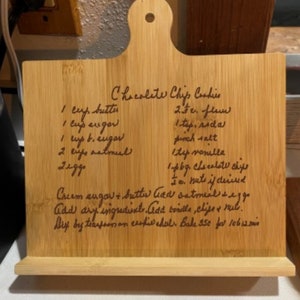 Chocolate Chip Cookies
1 cup butter
1 cup sugar
1 cup b. sugar
2 cups oatmeal
2 eggs
2 c. flour
1 tsp. soda
pinch salt
1 tsp vanilla
1 pkg. chocolate chips
nuts if desired
Cream sugar & butter Add oatmeal & eggs
Add dry ingredients Add vanilla, chips & nuts.
by teaspoon on cookie sheet. Bake 350 for 10 to 12 min